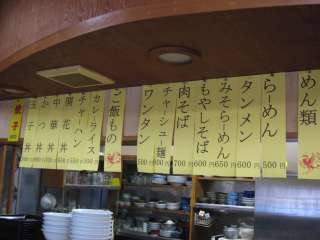 めん類
らーめん
500円
タンメン
600円
みそらーめん
650円
もやしそば
600円
肉そば
700円
チャーシュ麺
ワンタン
500円
ご飯もの
カレーライス
チャーハン
開花丼
中華丼
かつ丼
玉子丼
餃子